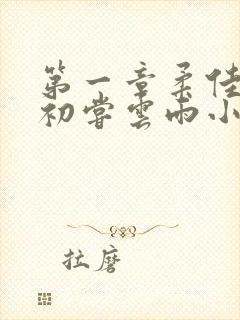 第一章柔佳
初尝云雨小
拉磨